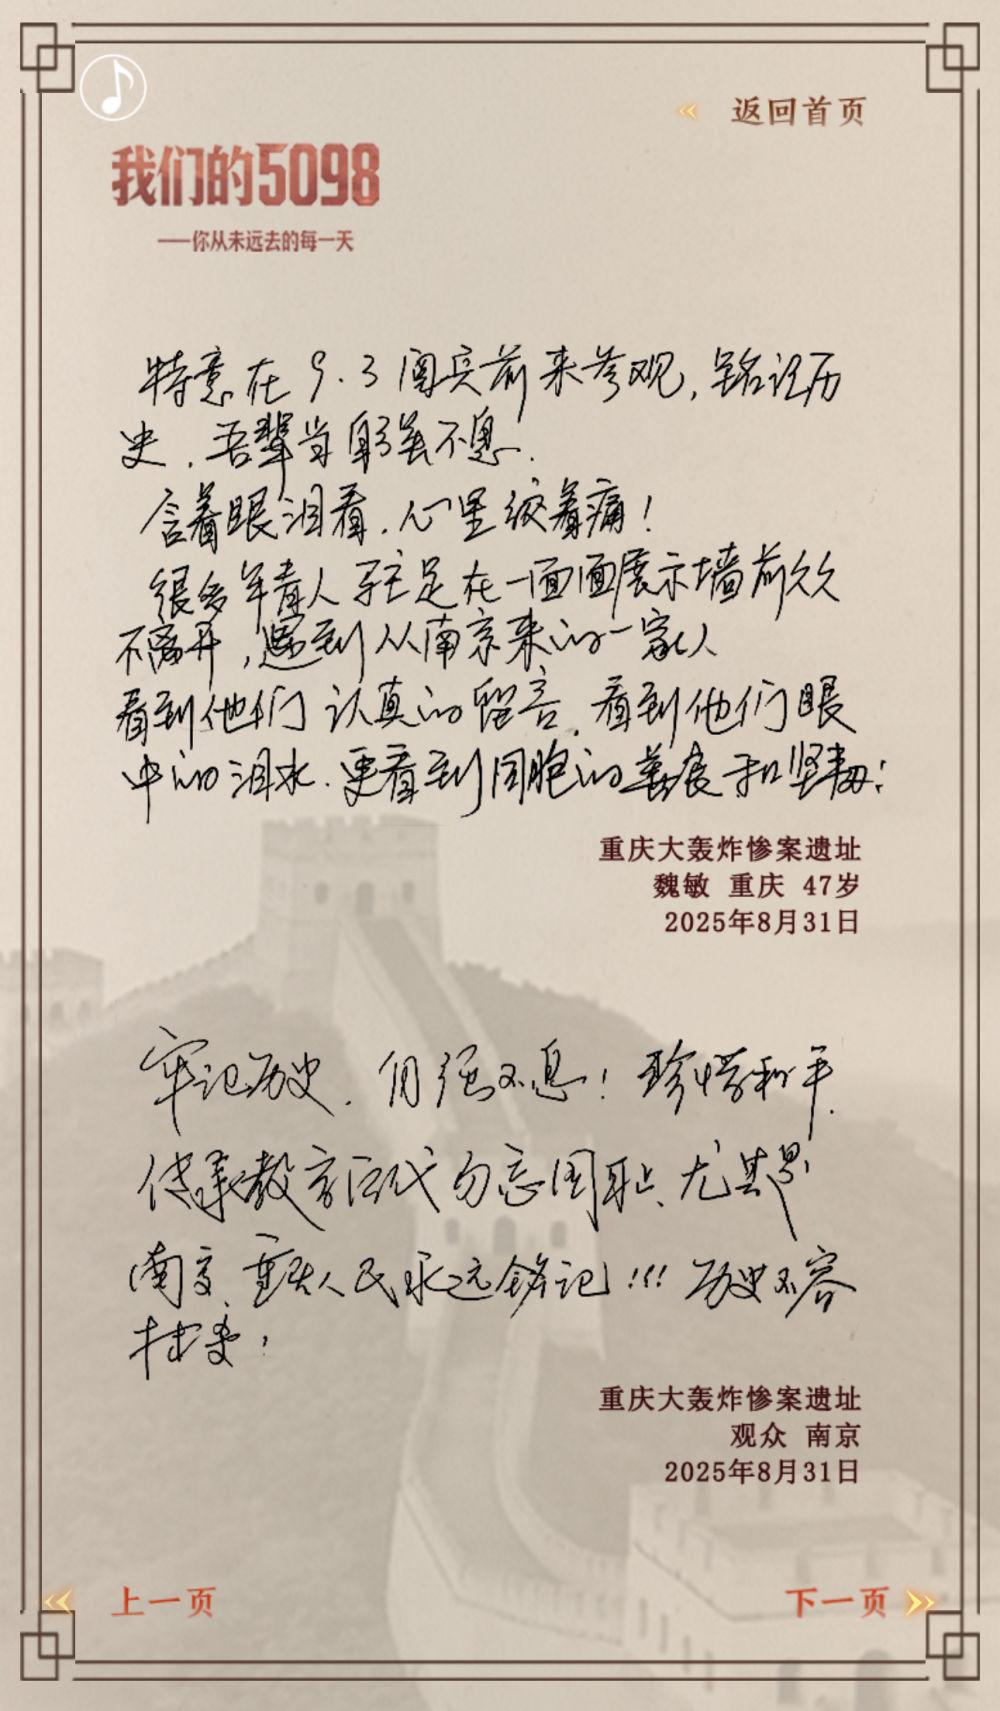 返回首页
我们的5098
——你从未远去的每一天
特意在9.3阅兵前来参观,铭记历
史.吾辈当自强不息.
含着眼泪看.心里绞着痛!
很多年青人驻足在一面面展示墙前久久
不离开,遇到从南京来的一家人
看到他们认真的留言.看到他们眼
中的泪水.更看到同胞的 和坚韧!
重庆大轰炸惨案遗址
魏敏 重庆 47岁
2025年8月31日
牢记历史.自强不息!珍惜和平.
传承教育后代勿忘国耻、尤其是
南京、重庆人民永远铭记!!!历史不容
抹杀!
重庆大轰炸惨案遗址
观众 南京
2025年8月31日
上一页
下一页